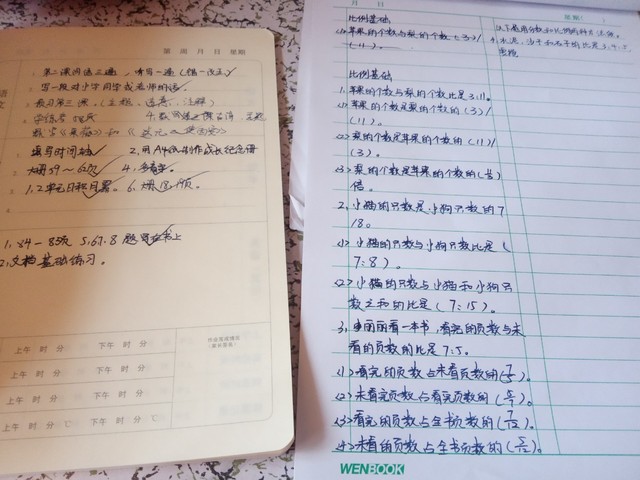 第 周 月 日 星期
1. 第二课词语三遍,听写一遍(错一改三)
2. 写一段对小学同学或老师的话
3. 预习第三课。
1. 填写时间轴 2. 用A4纸制作成长纪念册
3. 大册59~62页 4.
5. 1.2单元日积月累。 6.
1. 84-85页 5.6.7.8题 写在书上
2. 文档基础练习。
作业完成情况
(家长签名)
上午 时 分 下午 时 分
上午 时 分 下午 时 分
上午 时 分 下午 时 分
上午 时 分 ℃ 下午 时 分 ℃
月 日
星期:
比例基础
<1> 苹果的个数与梨的个数(3)/
(11)。
比例基础
1. 苹果的个数与梨的个数比是3:11。
<1> 苹果的个数是梨的个数的(3)/
(11)。
<2> 梨的个数是苹果的个数的(11)/
(3)。
<3> 梨的个数是苹果的个数的
倍。
2. 小猫的只数是小狗只数的7
/8。
<1> 小猫的只数与小狗只数比是(
7:8)。
<2> 小猫的只数与小猫和小狗只
数之和的比是(7:15)。
3. 丽丽看一本书,看完的页数与未
看的页数的比是7:5。
<1> 看完的页数占未看页数的(7/5)。
<2> 未看完页数占看完页数的(5/7)。
<3> 看完的页数占全书页数的(7/12)。
<4> 未看的页数占全书页数的(5/12)。
4. 水泥、沙子和石子的比是
WENBOOK